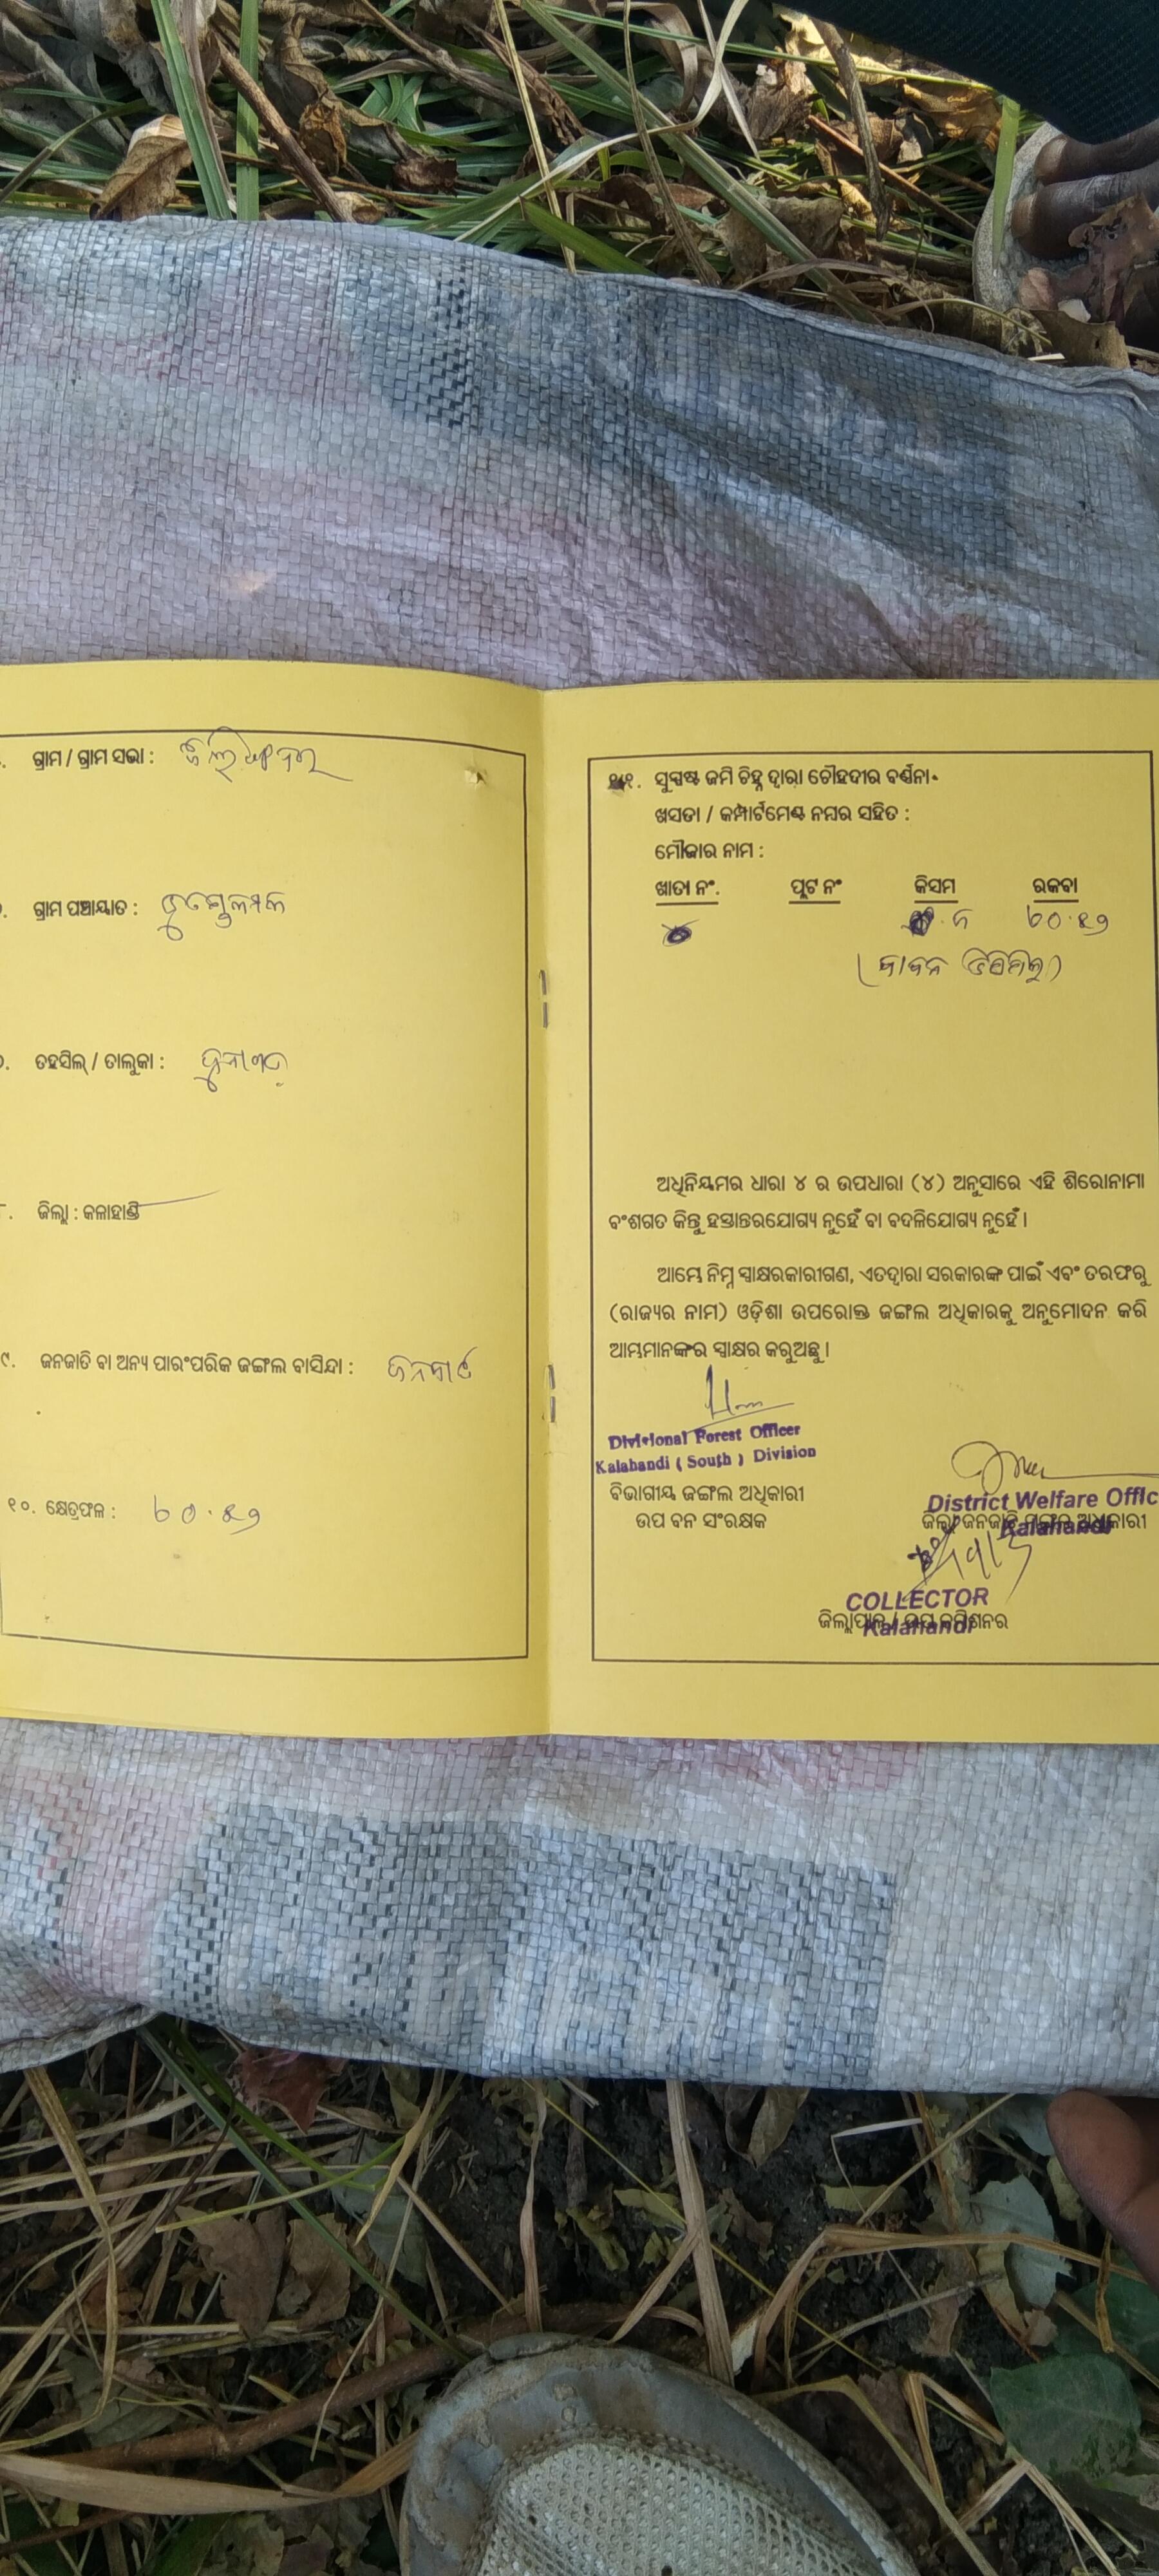 ଗ୍ରାମ / ଗ୍ରାମ ସଭା :
ଗ୍ରାମ ପଞ୍ଚାୟାତ :
ତହସିଲ୍ / ତାଲୁକା :
ଜିଲ୍ଲା : କଳାହାଣ୍ଡି
୯. ଜନଜାତି ବା ଅନ୍ୟ ପାରଂପରିକ ଜଙ୍ଗଲ ବାସିନ୍ଦା : ଜନଜାତି
୧୦. କ୍ଷେତ୍ରଫଳ : ୬୦.୫୬
୧୧. ସୁସ୍ପଷ୍ଟ ଜମି ଚିହ୍ନ ଦ୍ୱାରା ଚୌହଦୀର ବର୍ଣ୍ଣନା
ଖସଡା / କମ୍ପାର୍ଟମେଣ୍ଟ ନମ୍ବର ସହିତ :
ମୌଜାର ନାମ :
ଖାତା ନଂ. ପ୍ଲଟ ନଂ କିସମ ରକବା
୬୦.୫୬
ଅଧିନିୟମର ଧାରା ୪ ର ଉପଧାରା (୪) ଅନୁସାରେ ଏହି ଶିରୋନାମା
ବଂଶଗତ କିନ୍ତୁ ହସ୍ତାନ୍ତରଯୋଗ୍ୟ ନୁହେଁ ବା ବଦଳିଯୋଗ୍ୟ ନୁହେଁ ।
ଆମ୍ଭେ ନିମ୍ନ ସ୍ୱାକ୍ଷରକାରୀଗଣ, ଏତଦ୍ୱାରା ସରକାରଙ୍କ ପାଇଁ ଏବଂ ତରଫରୁ
(ରାଜ୍ୟର ନାମ) ଓଡ଼ିଶା ଉପରୋକ୍ତ ଜଙ୍ଗଲ ଅଧିକାରକୁ ଅନୁମୋଦନ କରି
ଆମ୍ଭମାନଙ୍କର ସ୍ୱାକ୍ଷର କରୁଅଛୁ ।
Divisional Forest Officer
Kalahandi ( South ) Division
ବିଭାଗୀୟ ଜଙ୍ଗଲ ଅଧିକାରୀ
ଉପ ବନ ସଂରକ୍ଷକ
District Welfare Offic
ଜିଲ୍ଲା ଜନଜାତି ମଙ୍ଗଳ ଅଧିକାରୀ
Kalahandi
COLLECTOR
ଜିଲ୍ଲାପାଳ /
Kalahandi